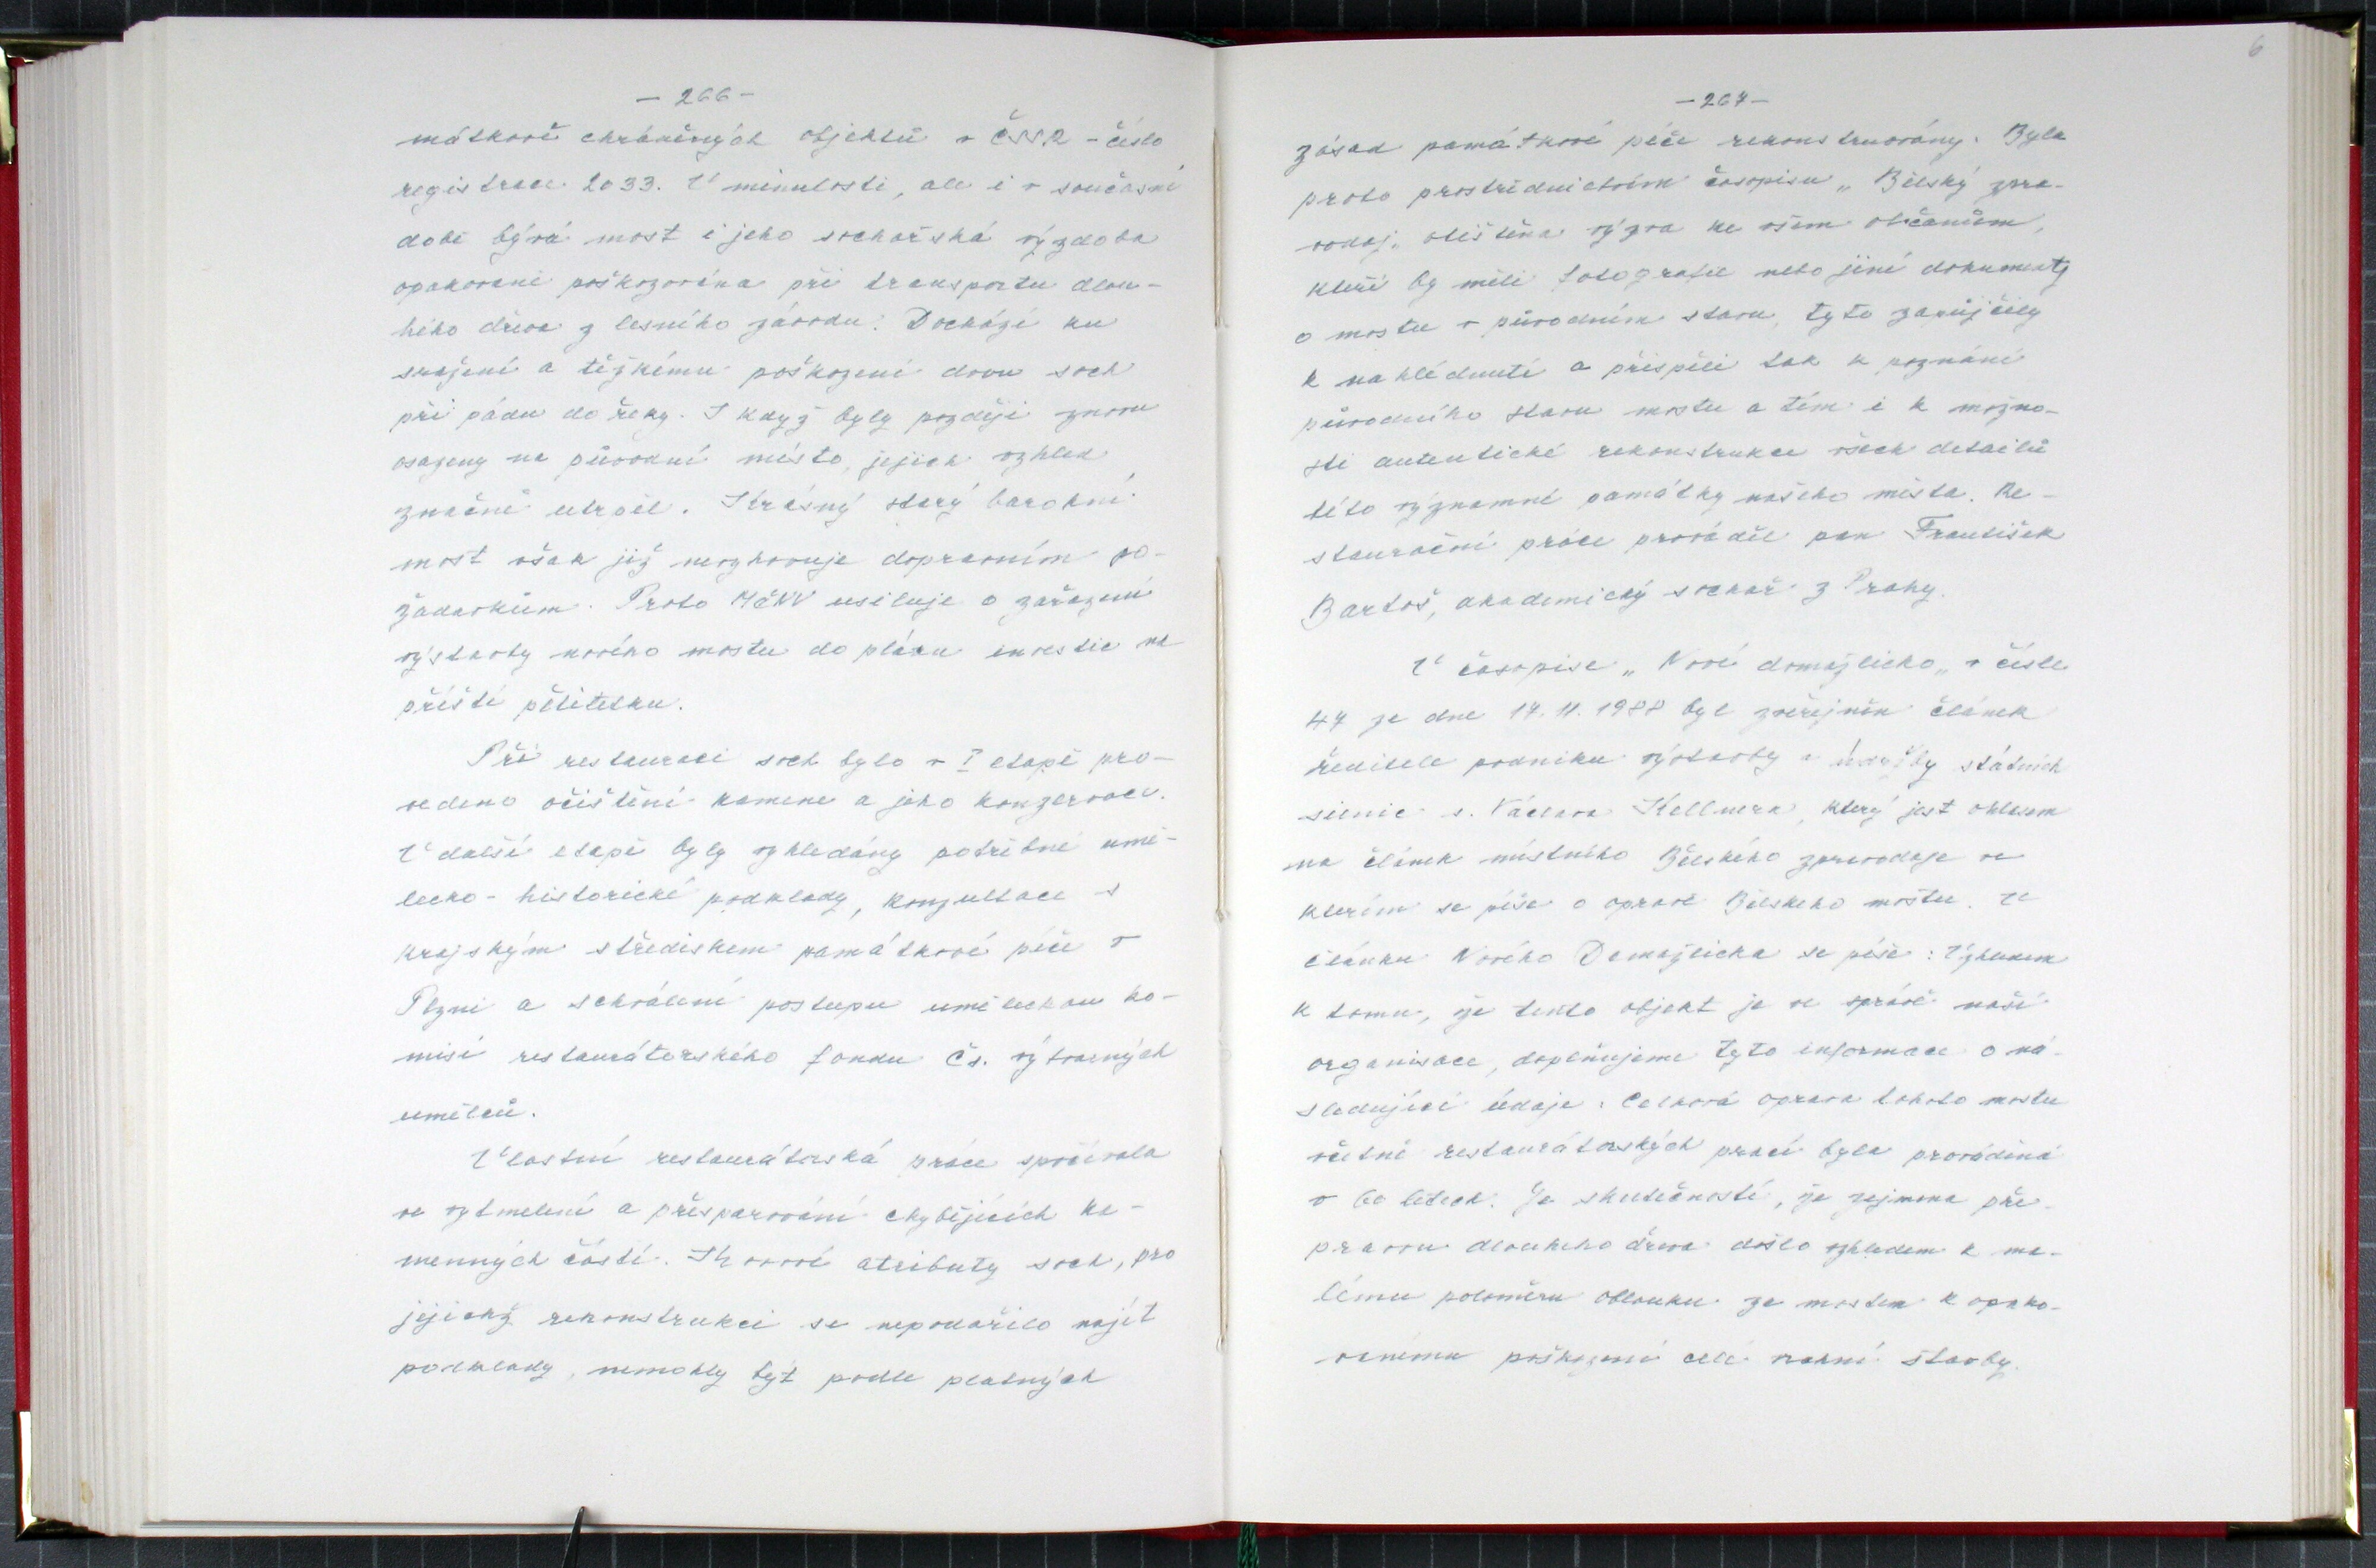 - 266 -
mátkově chráněných objektů v ČSSR - číslo
registrace 2033. V minulosti, ale i v současné
době bývá most i jeho sochařská výzdoba
opakovaně poškozována při transportu dlou-
hého dřeva z lesního závodu. Dochází ku
sražení a těžkému poškození dvou soch
při pádu do řeky. I když byly později znovu
osazeny na původní místo, jejich vzhled
značně utrpěl. Krásný starý barokní
most však již nevyhovuje dopravním po-
žadavkům. Proto MěNV usiluje o zařazení
výstavby nového mostu do plánu investic na
příští pětiletku.
Při restauraci soch bylo v I etapě pro-
vedeno očištění kamene a jeho konzervace.
V další etapě byly vyhledány potřebné umě-
lecko - historické podklady, konzultace s
krajským střediskem památkové péče v
Plzni a schválení postupu uměleckou ko-
misí restaurátorského fondu čs. výtvarných
umělců.
Vlastní restaurátorská práce spočívala
ve vytmelení a přisparování chybějících ka-
menných částí. Kovové atributy soch, pro
jejichž rekonstrukci se nepodařilo najít
podklady, nemohly být podle platných
6
- 267 -
zásad památkové péče rekonstruovány. Byla
proto prostřednictvím časopisu „ Bělský zpra-
vodaj „ otištěna výzva ke všem občanům,
kteří by měli fotografie nebo jiné dokumenty
o mostu v původním stavu, tyto zapůjčily
k nahlédnutí a přispěli tak k poznání
původního stavu mostu a tím i k možno-
sti autentické rekonstrukce všech detailů
této významné památky našeho města. Re-
staurační práce prováděl pan František
Bartoš, akademický sochař z Prahy.
V časopise „ Nové domažlicko „ v čísle
47 ze dne 17. 11. 1988 byl zveřejněn článek
ředitele podniku výstavby a údržby státních
silnic s. Václava Kellnera, který jest ohlasem
na článek místního Bělského zpravodaje ve
kterém se píše o opravě Bělského mostu. V
článku Nového Domažlicka se píše : Vzhledem
k tomu, že tento objekt je ve správě naší
organisace, doplňujeme tyto informace o ná-
sledující údaje. Celková oprava tohoto mostu
včetně restaurátorských prací byla prováděná
v 60 létech. Je skutečností, že zejmena pře-
pravou dlouhého dřeva došlo vzhledem k ma-
lému poloměru oblouku za mostem k opako-
vanému poškození celé stavby.